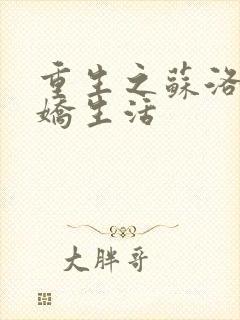 重生之蘇洛
嬌生活
大胖哥